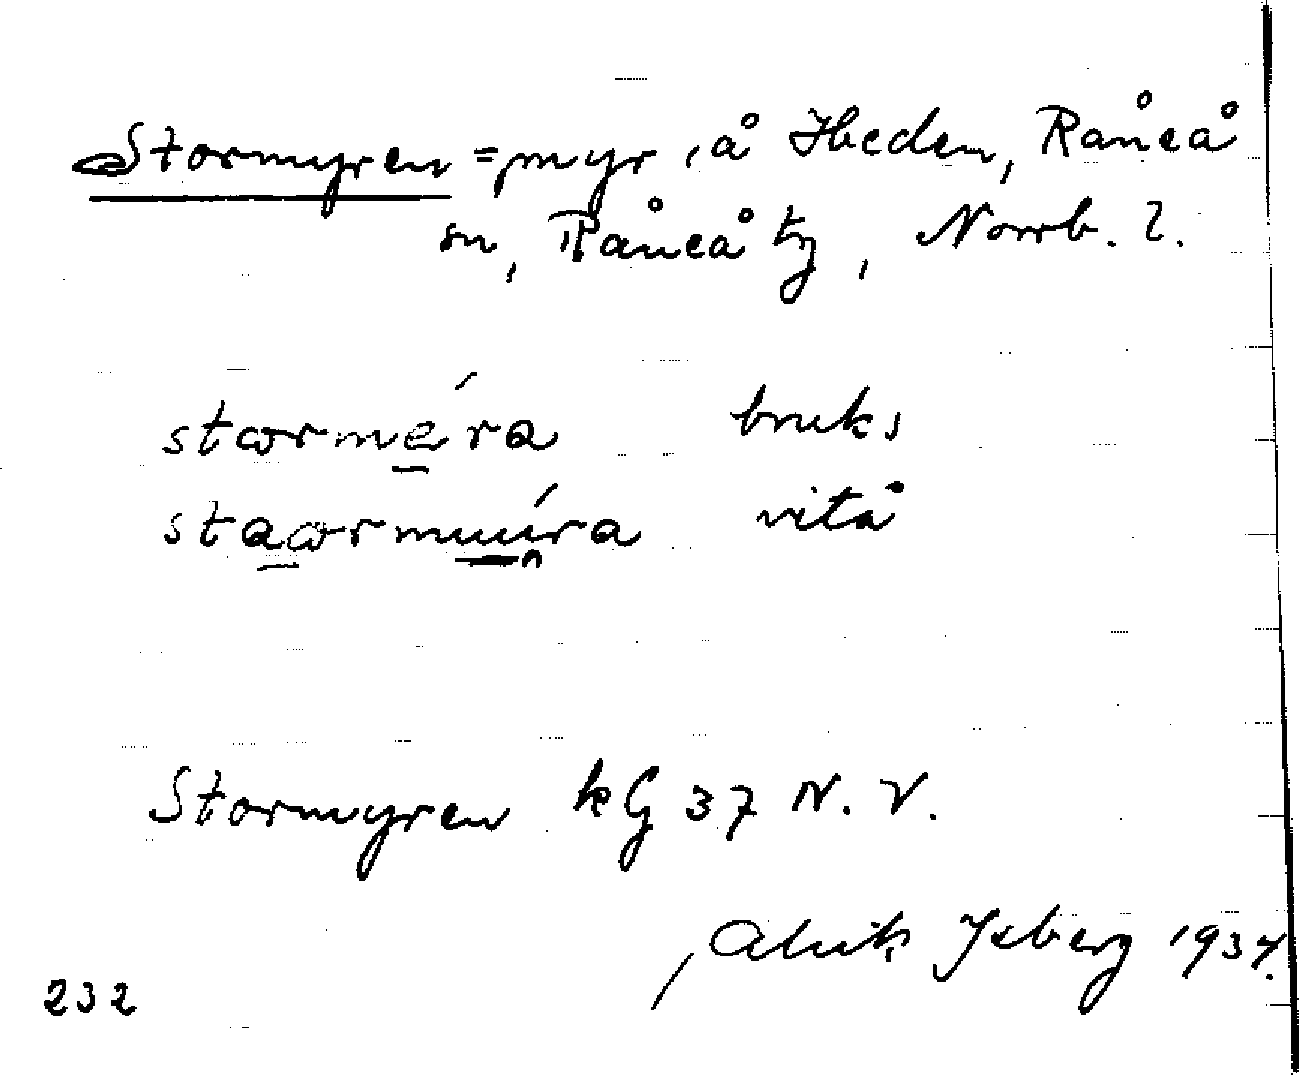 Stormyren = myr, å Heden, Råneå
sn, Råneå tg, Norrb. l.
stormera bruks
vitå
Stormyren kG 37 N. V.
Isberg 1937.
232